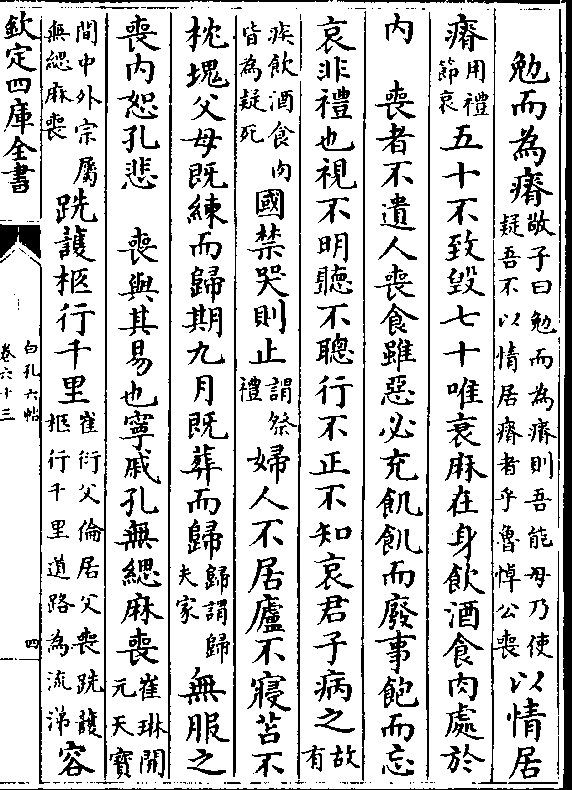 勉而為瘠敬子曰勉而為瘠則吾能毋乃使疑吾不以情居瘠者乎魯悼公喪以情居
瘠用禮節哀五十不致毀七十唯衰麻在身飲酒食肉處於
内　喪者不遺人喪食雖惡必充飢飢而廢事飽而忘
哀非禮也視不明聽不聰行不正不知哀君子病之故有
疾飲酒食肉皆為疑死國禁哭則止謂祭禮婦人不居廬不寢苫不
枕塊父母既練而歸期九月既葬而歸歸謂歸夫家無服之
喪内恕孔悲　喪與其易也寧戚孔無緦麻喪崔琳開元天寶
間中外宗属無緦麻喪跣護柩行千里崔衍父倫居父喪跣護柩行千里道路為流涕容
欽定四庫全書
白孔六帖
卷六十三
四